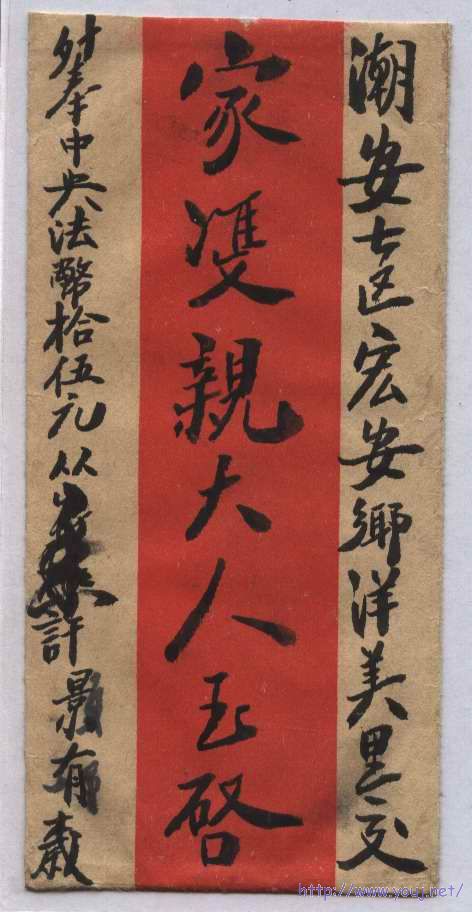 潮安七区宏安鄉洋美里交
家雙親大人玉啓
外奉中央法幣拾伍元 從 許景有裁
http://www.youj.net/